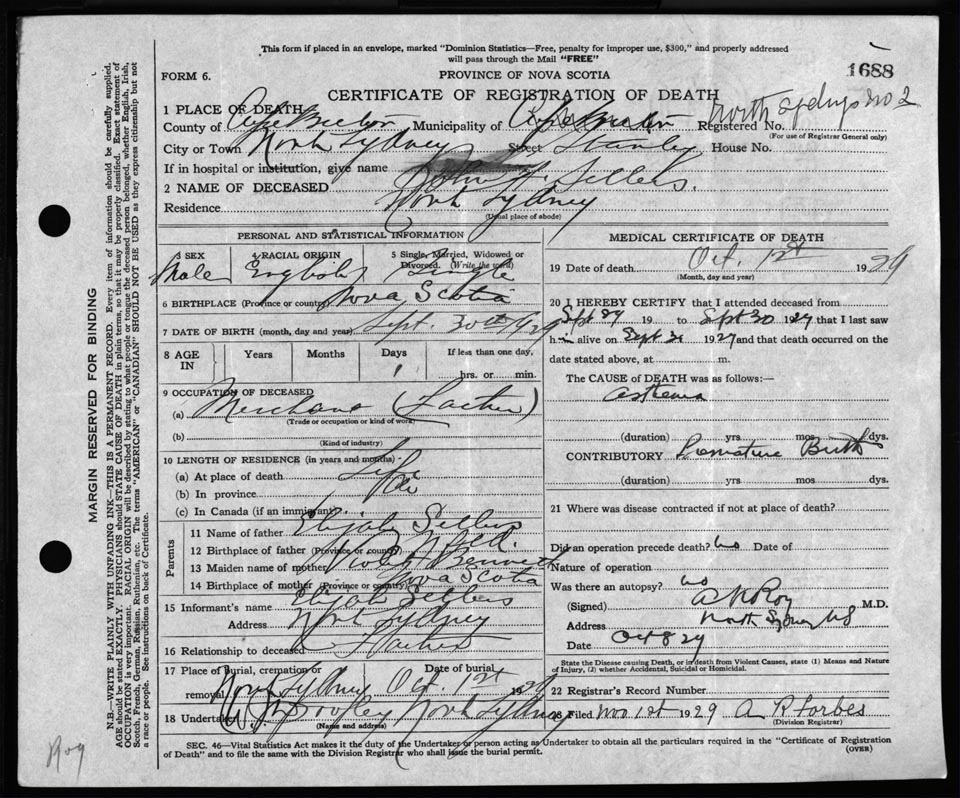 This form if placed in an envelope, marked "Dominion Statistics—Free, penalty for improper use, $300," and properly addressed
will pass through the Mail "FREE"
1688
FORM 6.
PROVINCE OF NOVA SCOTIA
CERTIFICATE OF REGISTRATION OF DEATH
1 PLACE OF DEATH
County of Cape Breton Municipality of Cape Breton Registered No. North Sydney no 2
(For use of Registrar General only)
City or Town North Sydney Street Stanley House No.
If in hospital or institution, give name
2 NAME OF DECEASED John H. Sellers.
Residence North Sydney
(Usual place of abode)
PERSONAL AND STATISTICAL INFORMATION
3 SEX Male
4 RACIAL ORIGIN English
5 Single, Married, Widowed or Divorced. (Write the word) Single
6 BIRTHPLACE (Province or country) Nova Scotia
7 DATE OF BIRTH (month, day and year) Sept. 30th 1929
8 AGE IN Years Months Days 1 If less than one day, hrs. or min.
9 OCCUPATION OF DECEASED
(a) Merchant (Father)
(Trade or occupation or kind of work)
(b)
(Kind of industry)
10 LENGTH OF RESIDENCE (in years and months)
(a) At place of death Life
(b) In province
(c) In Canada (if an immigrant)
Parents
11 Name of father Elijah Sellers
12 Birthplace of father (Province or country) Nfld.
13 Maiden name of mother Violet Bennett
14 Birthplace of mother (Province or country) Nova Scotia
15 Informant's name Elijah Sellers
Address North Sydney
16 Relationship to deceased Father
17 Place of Burial, cremation or removal North Sydney Date of burial Oct. 1st 1929
18 Undertaker North Sydney
(Name and address)
MEDICAL CERTIFICATE OF DEATH
19 Date of death Oct. 1st 1929
(Month, day and year)
20 I HEREBY CERTIFY that I attended deceased from
Sept 29 19 to Sept 30 1929 that I last saw
h alive on Sept 30 1929 and that death occurred on the
date stated above, at m.
The CAUSE of DEATH was as follows:—
Asthenia
(duration) yrs. mos. dys.
CONTRIBUTORY Premature Birth
(duration) yrs mos dys.
21 Where was disease contracted if not at place of death?
Did an operation precede death? No Date of
Nature of operation
Was there an autopsy? no
(Signed) M.D.
Address North Sydney NS
Date Oct 8 29
State the Disease causing Death, or in death from Violent Causes, state (1) Means and Nature
of Injury, (2) whether Accidental, Suicidal or Homicidal.
22 Registrar's Record Number
23 Filed Nov 1st 1929 A R Forbes
(Division Registrar)
SEC. 46—Vital Statistics Act makes it the duty of the Undertaker or person acting as Undertaker to obtain all the particulars required in the "Certificate of Registration
of Death" and to file the same with the Division Registrar who shall issue the burial permit.
(OVER)
MARGIN RESERVED FOR BINDING
N.B.—WRITE PLAINLY WITH UNFADING INK—THIS IS A PERMANENT RECORD. Every item of information should be carefully supplied.
AGE should be stated EXACTLY. PHYSICIANS should STATE CAUSE OF DEATH in plain terms, so that it may be properly classified. Exact statement of
OCCUPATION is very important. RACIAL ORIGIN will be described by stating to what people or tongue the deceased person belonged, whether English, Irish,
Scotch, French, German, Russian, Ruthenian, etc. The terms "AMERICAN" or "CANADIAN" SHOULD NOT BE USED as they express citizenship but not
a race or people. See instructions on back of Certificate.